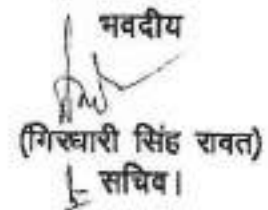 भवदीय
(गिरधारी सिंह रावत)
सचिव।